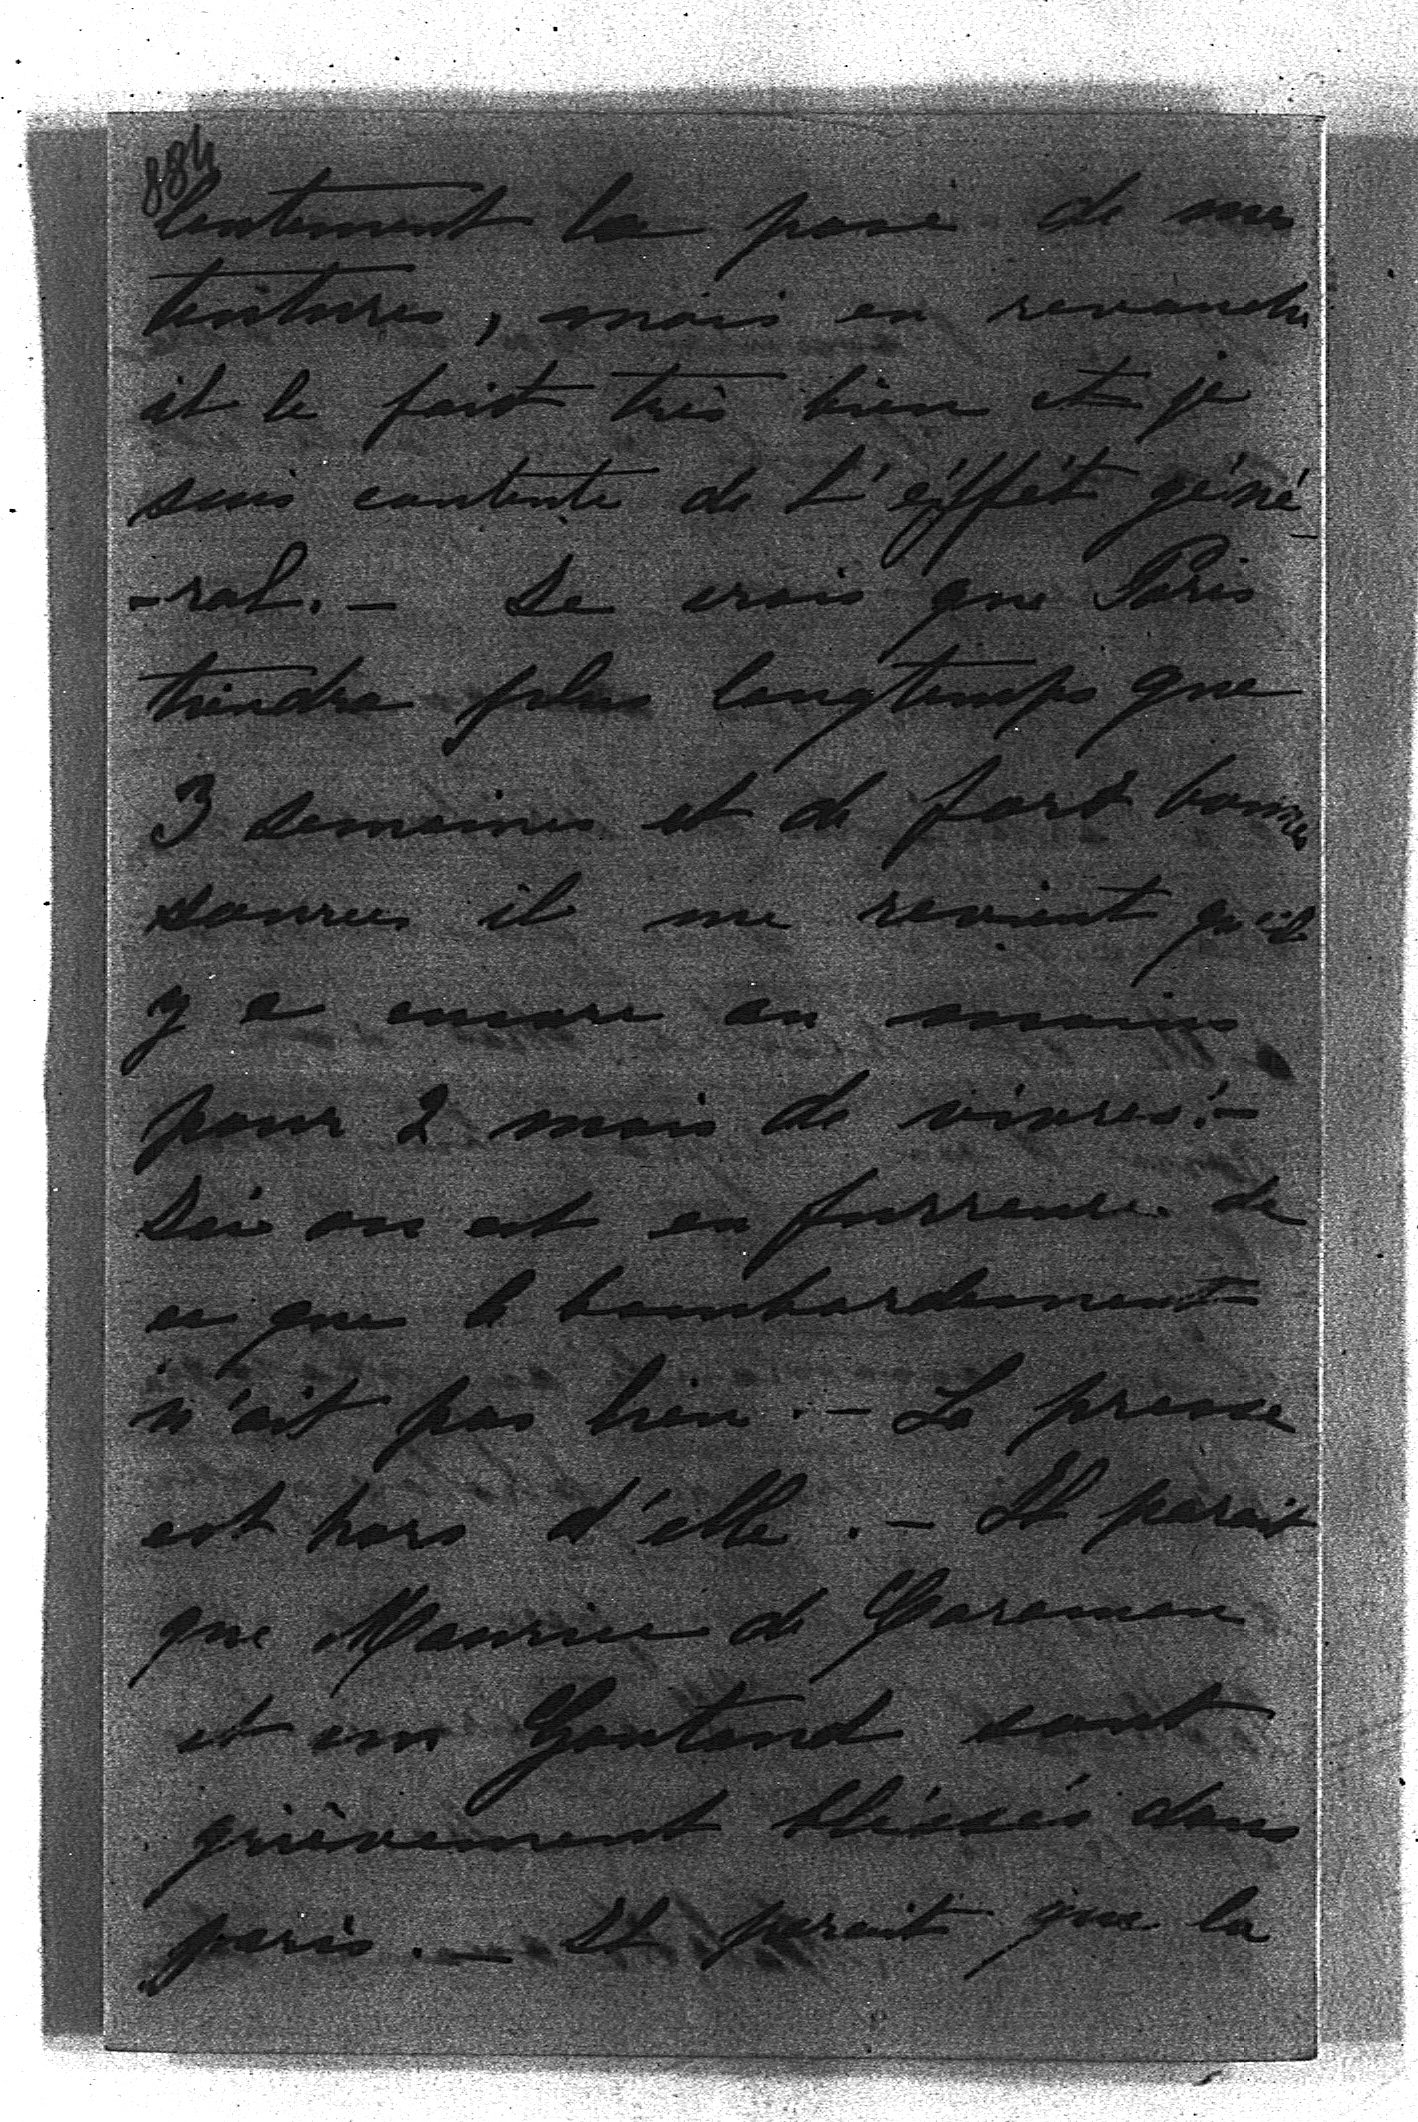 884
lentement la pose de mes
tentures, mais en revanche
il le fait très bien et je
suis contente de l'éffét géné
-ral. — Je crois que Paris
tiendra plus longtemps que
3 semaines et de fort bonnes
sources il me revient qu'il
y a encore au moins
pour 2 mois de vivres! —
Ici on est en furreure de
ce que le bombardement
n'ait pas lieu. — La presse
est hors d'elle. — Il parait
que Maurice de Caraman
et un Gontand sont
grièvement bléssés dans
paris. — Il parait que la